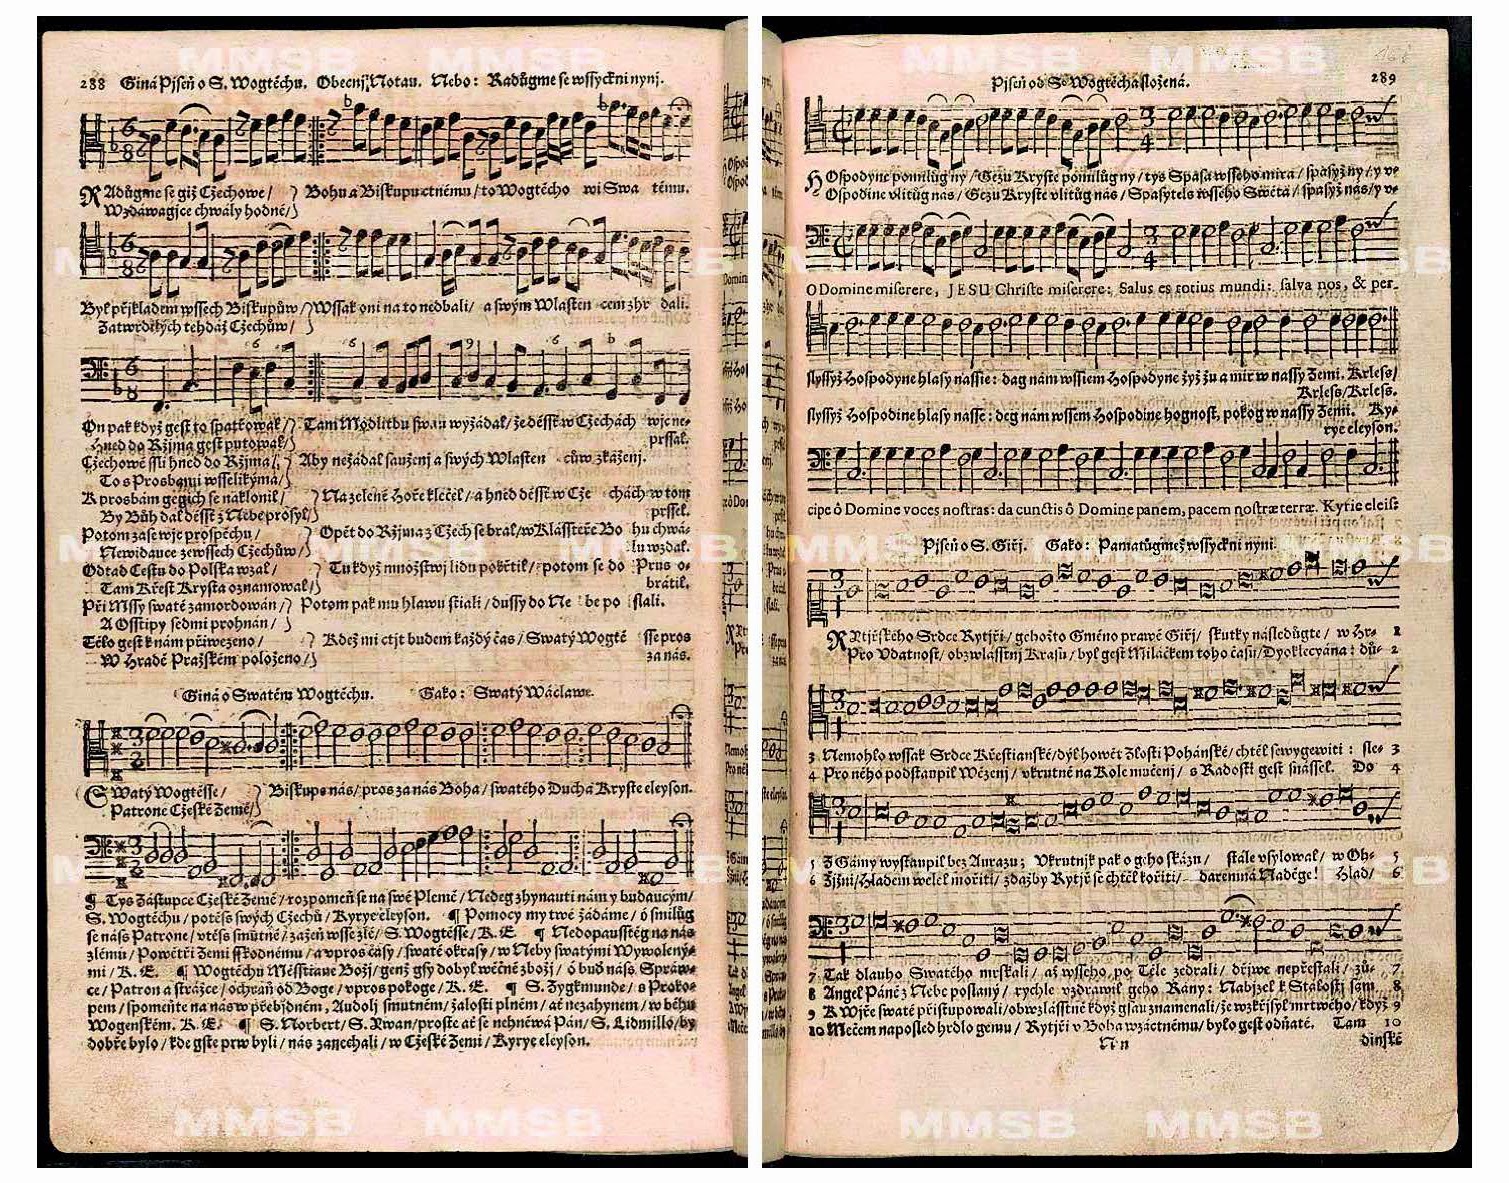 288 Giná Pjseň o S. Wogtěchu. Obecnj Notau. Nebo: Radůgme se wssyckni nynj.
RAdůgme se giž Cžechowe /
Bohu a Biskupu ctnému / to Wogtěcho wi Swa tému.
Wzdáwagjce chwály hodné /
Byl přjkladem wssech Biskupůw /
Wssak oni na to nedbali / a swým Wlasten cem zhr dali.
Zatwrdilých tehdáž Cžechůw /
On pak když gest to spatřowal /
Tam Modlitbu swau wyžádal / že désst w Cžechách
Hned do Ržjma gest putowal /
prssal.
Cžechowé ssli hned do Ržjma /
Aby nežádal saužení a swých Wlasten cůw zkáženj.
To s Prosbami wsselikýma /
K prosbám gegich se naklonil /
Na zelené Hoře klečel / a hned désst w Cže chách w tom
By Bůh dal désst z Nebe prosyl /
prssel.
Potom zase wje prospěchu /
Opět do Ržjma z Čzech se bral / w Klásstere Bo hu chwá-
Newidauce ze wssech Cžechůw /
lu wzdal.
Odtad Cestu do Polska wzal /
Tu když množstwj lidu pokřtil / potom se do Prus o-
Tam Křest Krysta oznamowal /
brátil.
Při Mssy swaté zamordowán /
Potom pak mu hlawu stiali / dussy do Ne be po slali.
A Osstipy sedmi prohnán /
Tělo gest k nám přiwezeno /
Kdež mi ctjt budem každý čas / Swatý Wogtě sse pros
W Hradě Pražském položeno /
za nás.
Giná o Swatém Wogtěchu. Gako: Swatý Wáclawe.
SWatý Wogtěsse /
Biskupe nás / pros za nás Boha / swatého Ducha Kryste eleyson.
Patrone Cžeské Země /
¶ Tys Zástupce Cžeské Země / rozpomeň se na swé Plemě / Nedeg zhynauti nám y budaucým /
S. Wogtěchu / potěss swých Cžechů / Kyrye eleyson. ¶ Pomocy my twé žádáme / ó smilůg
se náss Patrone / vtěss smutné / zažeň wsse zlé / S. Wogtěsse / K. E. ¶ Nedopausstěg na nás
zlému / Powětři Zemi sskodnému / a vpros časy / swaté okrasy / w Neby swatými Wywoleny-
mi / K. E. ¶ Wogtěchu Měsstiane Boži / genž gsy dobyl wěčné zboži / ó bud náss Spráw-
ce / Patron a strážce / ochraň od Boge / vpros pokoge / K. E. ¶ S. Zygkmunde / s Proko-
pem / spomeňte na nás w přebjdném / Audolj smutném / žalosti plném / at nezahynem / w běhu
Wogenském. K. E. ¶ S. Norbert / S. Iwan / proste at se nehněwá Pán / S. Lidmillo / by
dobře bylo / kde gste prw byli / nás zanechali / w Cžeské Zemi / Kyrye eleyson.
Pjseň od S. Wogtěcha složená. 289
HOspodyne pomilug ny / Gezu Kryste pomilug ny / tys Spasa wsseho mira / spasyž ny / y v-
Ospodine vlitůg nás / Gezu Kryste vlitůg nás / Spasytels wsseho Swěta / spasyž nás / y v-
O Domine miserere, JESU Christe miserere: Salus es totius mundi: salva nos, & per-
slyssyž Hospodyne hlasy nassie: dag nám wssiem Hospodyne žyž žu a mir w nassy Zemi. Krless /
Krless / Krless.
slyssyž Hospodine hlasy nasse: deg nám wssem Hospodine hognost, pokog w nassy Zemi. Ky-
rye eleyson.
cipe ô Domine voces nostras: da cunctis ô Domine panem, pacem nostræ terræ. Kyrie eleis:
Pjseň o S. Giřj. Gako: Pamatůgmež wssyckni nyni.
RYtjřského Srdce Rytjři / gehožto Gméno prawé Giřj / skutky následůgte / w Hr- 1
Pro Vdatnost / obzwlásstnj Krásu / byl gest Miláčkem toho času / Dyoklecyána: dů- 2
3 Nemohlo wssak Srdce Křestianské / dýl howět Zlosti Pohanské / chtěl se wygewiti: sle- 3
4 Pro něho podstaupil Wězenj / vkrutné na Kole mučenj / s Radostj gest snássel. Do 4
5 Z Gámy wystaupil bez Aurazu: Vkrutnjk pak o geho skázu / stále vsylowal / w Oh- 5
6 Žjžnj / Hladem welel mořiti / zdažby Rytjř se chtěl kořiti / daremná Naděge! Hlad / 6
7 Tak dlauho Swatého mrskali / až wsseho po Těle zedrali / dřjwe nepřestali / zů- 7
8 Angel Páně z Nebe poslaný / rychle vzdrawil geho Rány: Nabjzel k Stálosti sám 8
9 K Wjře swaté přistupowali / obwzlásstně když gsau znamenali / že wzkřjsyl mrtwého / když 9
10 Mečem naposled hrdlo gemu / Rytjři v Boha wzáctnému / bylo gest odňaté. Tam 10
Nn
dinské